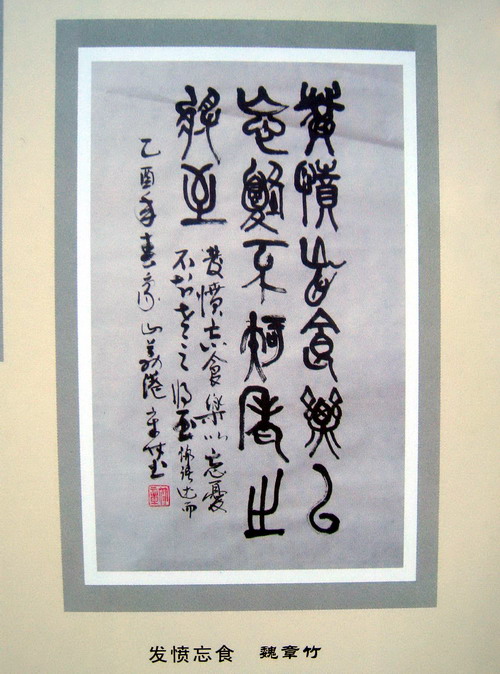 發憤忘食樂以
忘憂不知老之
將至
發憤忘食樂以忘憂
不知老之将至 論語述而
乙酉年春象山 章竹
发愤忘食 魏章竹